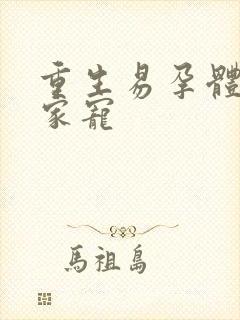 重生易孕體
家寵
馬祖島